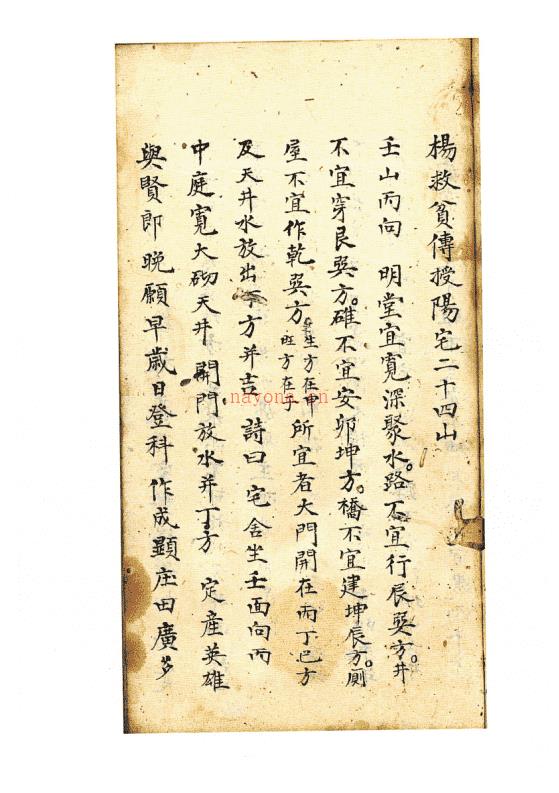 楊救貧傳授陽宅二十四山
壬山丙向 明堂宜寬深聚水。路不宜行辰巽方。井
不宜穿艮巽方。碓不宜安卯坤方。橋不宜建坤辰方。厠
屋不宜作乾巽方。生方在申旺方在子所宜者大門開在丙丁巳方
及天井水放出丁方并吉 詩曰 宅舍坐壬面向丙
中庭寬大砌天井 開門放水并丁方 定產英雄
與賢郎 晚願早歲日登科 作成顯庄田廣多
nayona.cn